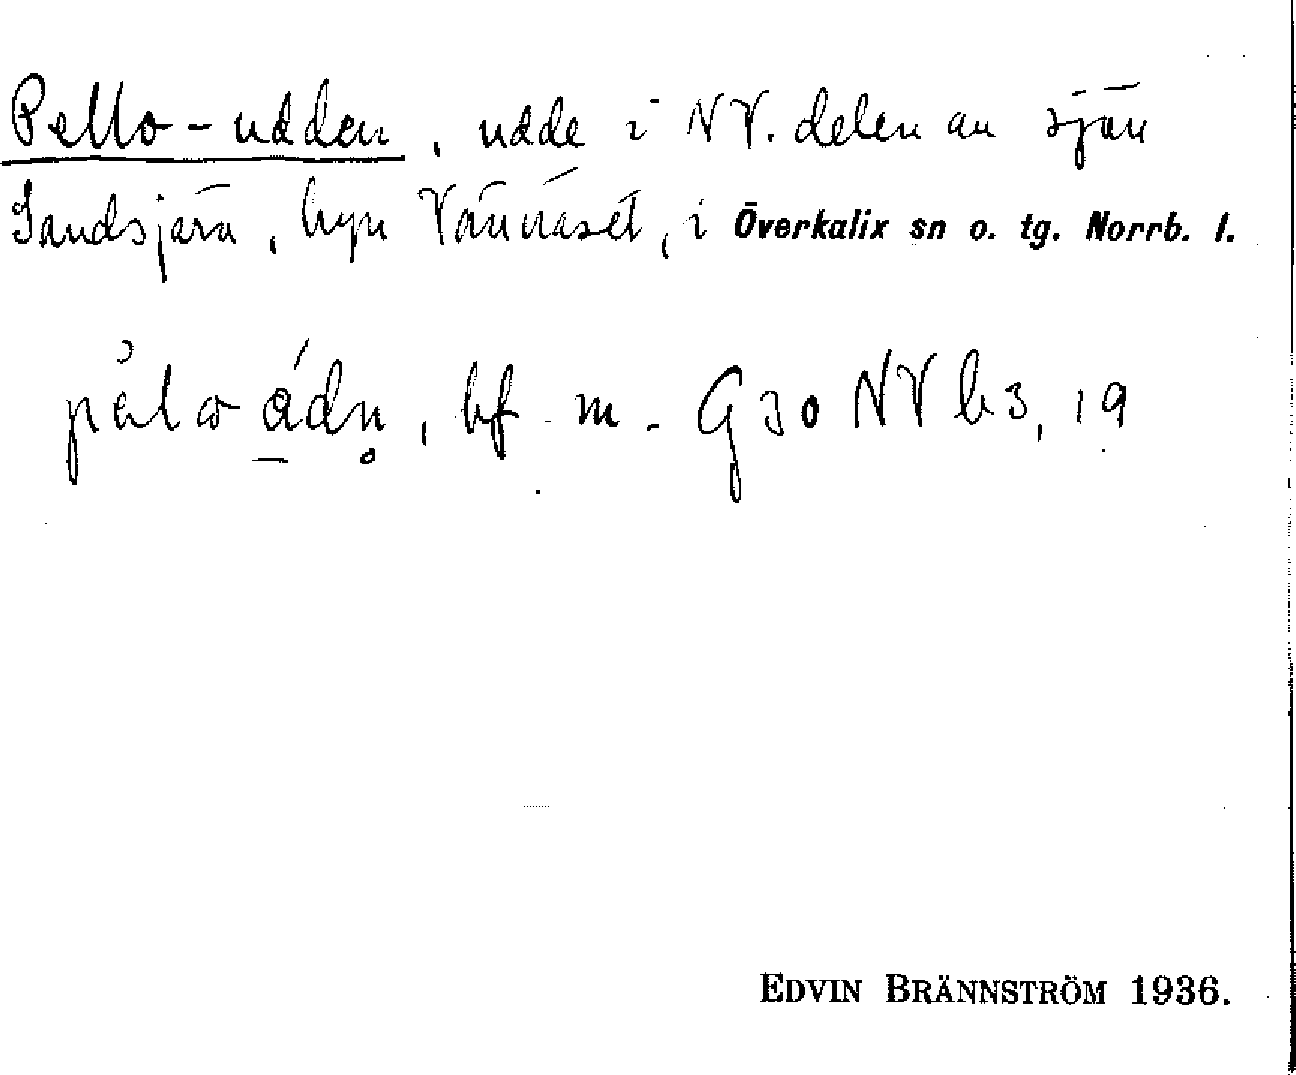 Pello-udden, udde i NV. delen av sjön
Sandsjärv, byn Vännäset, i Överkalix sn o. tg. Norrb. l.
bf. m. G30 NV b3, 19
EDVIN BRÄNNSTRÖM 1936.